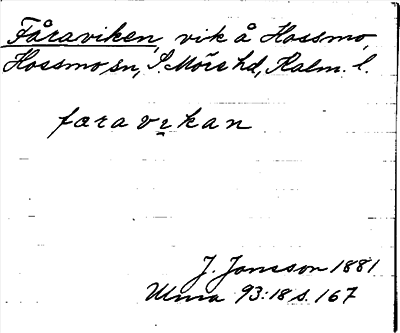 Fåraviken, vik å Hossmo,
Hossmo sn, S. Möre hd, Kalm. l.
færavı̣kan
J. Jonsson 1881
Ulma 93:18 s. 167